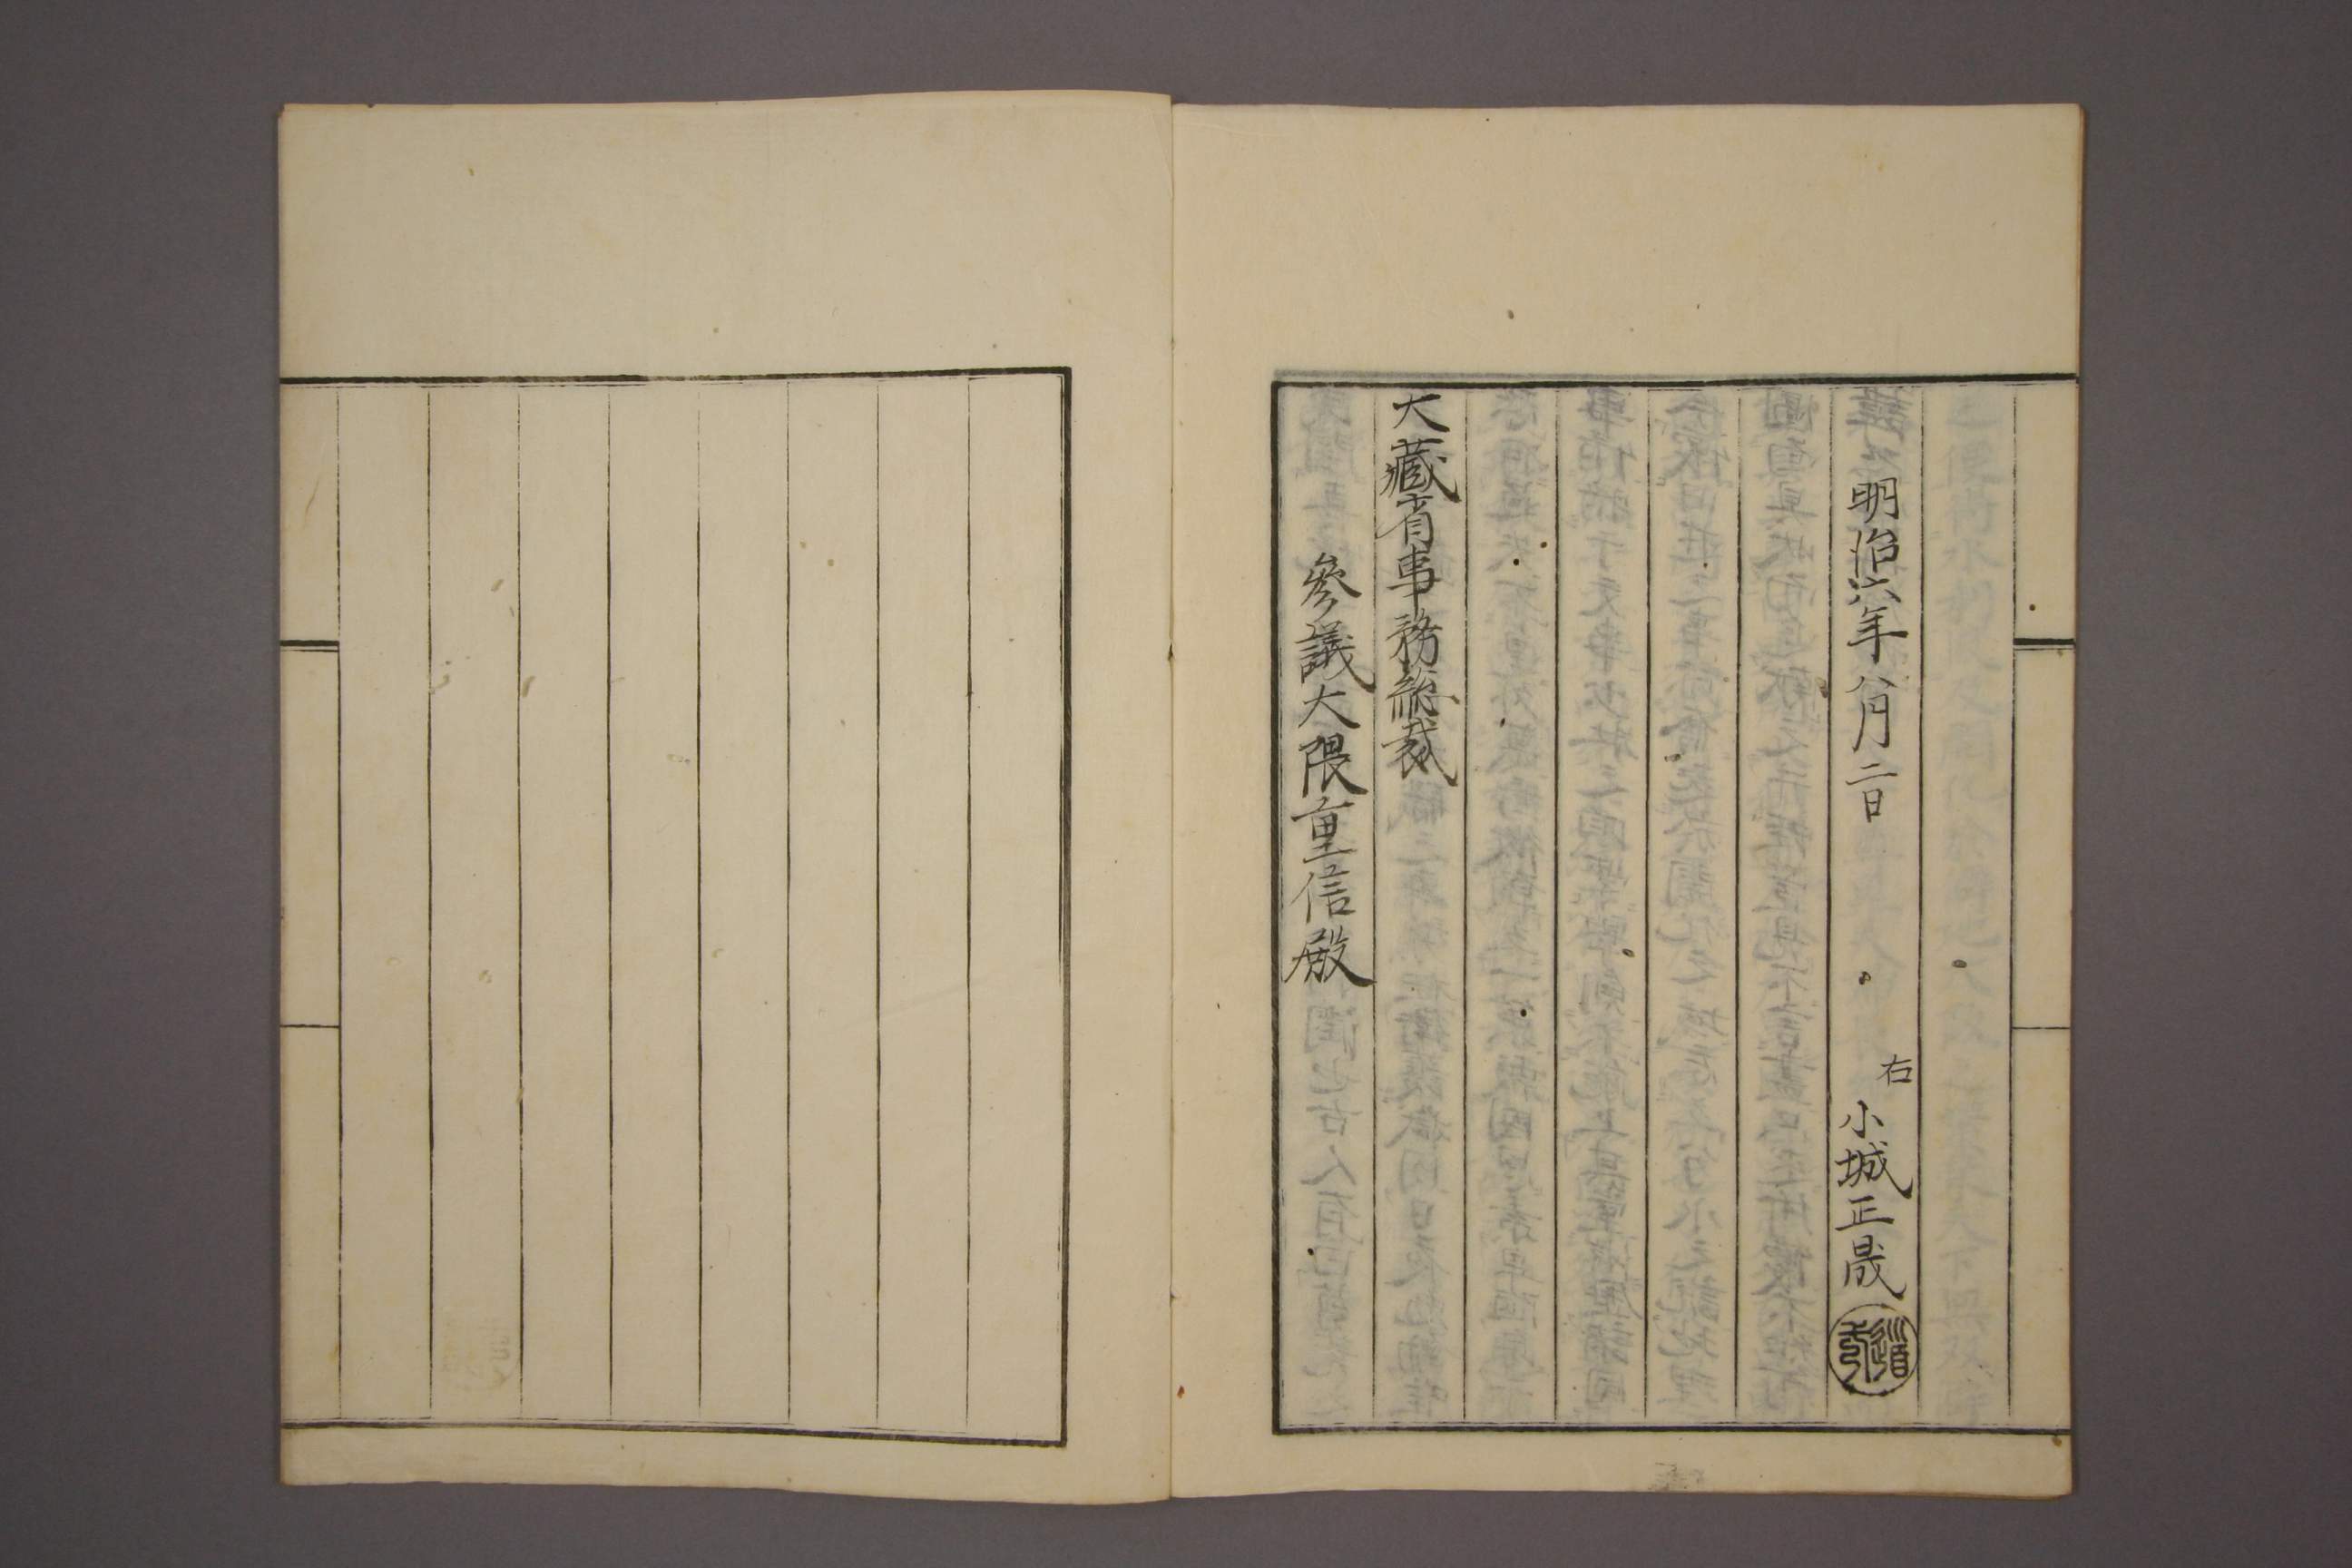 明治六年八月二日
右
小城正晟
大藏省事務總裁
參議大隈重信殿